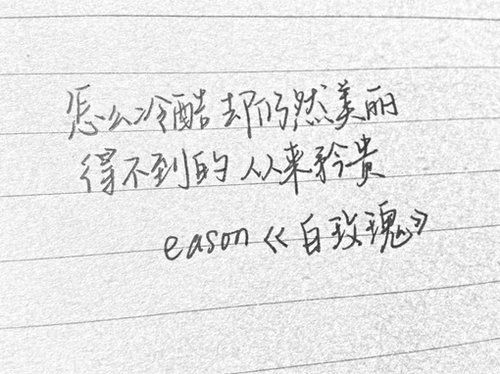 怎么冷酷却仍然美丽
得不到的从来矜贵
eason《白玫瑰》